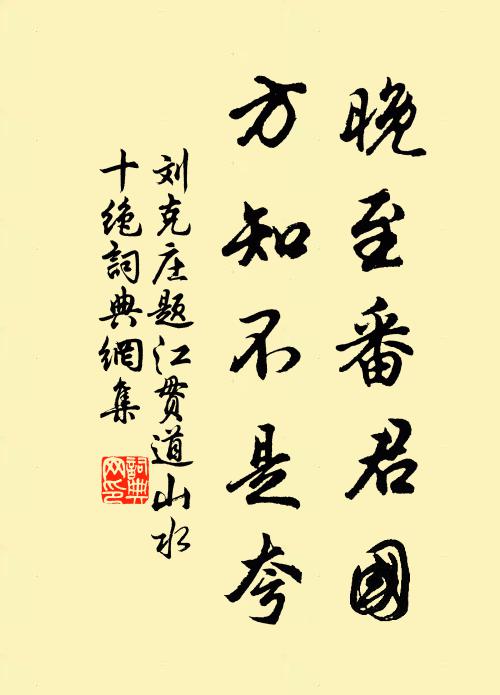 晚至番君國
方知不是夸
刘克庄题江贯道山水
十绝詞典網集
詞典网印